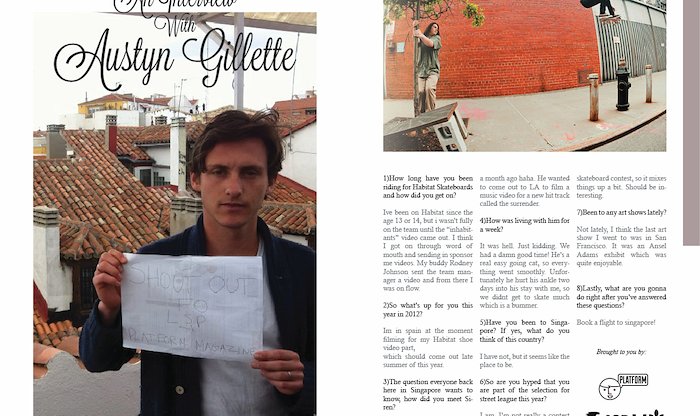 An Interview
With
Austyn Gillette
SHOUT OUT
TO
PLATFORM MAGAZINE
1)How long have you been
riding for Habitat Skateboards
and how did you get on?
Ive been on Habitat since the
age 13 or 14, but i wasn't fully
on the team until the “inhabit-
ants” video came out. I think
I got on through word of
mouth and sending in sponsor
me videos. My buddy Rodney
Johnson sent the team man-
ager a video and from there I
was on flow.
2)So what's up for you this
year in 2012?
Im in spain at the moment
filming for my Habitat shoe
video part,
which should come out late
summer of this year.
3)The question everyone back
here in Singapore wants to
know, how did you meet Si-
ren?
a month ago haha. He wanted
to come out to LA to film a
music video for a new hit track
called the surrender.
4)How was living with him for
a week?
It was hell. Just kidding. We
had a damn good time! He's a
real easy going cat, so every-
thing went smoothly. Unfor-
tunately he hurt his ankle two
days into his stay with me, so
we didnt get to skate much
which is a bummer.
5)Have you been to Singa-
pore? If yes, what do you
think of this country?
I have not, but it seems like the
place to be.
6)So are you hyped that you
are part of the selection for
street league this year?
I am. I'm not really a contest
skateboard contest, so it mixes
things up a bit. Should be in-
teresting.
7)Been to any art shows lately?
Not lately, I think the last art
show I went to was in San
Francisco. It was an Ansel
Adams exhibit which was
quite enjoyable.
8)Lastly, what are you gonna
do right after you've answered
these questions?
Book a flight to singapore!
Brought to you by:
PLATFORM